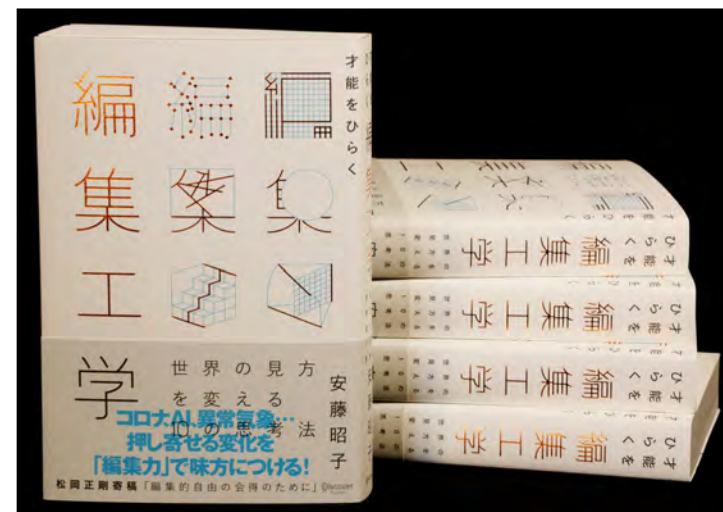 才能をひらく
編集工学
世界の見方
を変える
10の思考法
安藤昭子
コロナAI異常気象…
押し寄せる変化を
「編集力」で味方につける!
松岡正剛寄稿「編集的自由の会得のために」
才能を
ひらく
編集工学
才能を
ひらく
編集工学
才能を
ひらく
編集工学
才能を
ひらく
編集工学